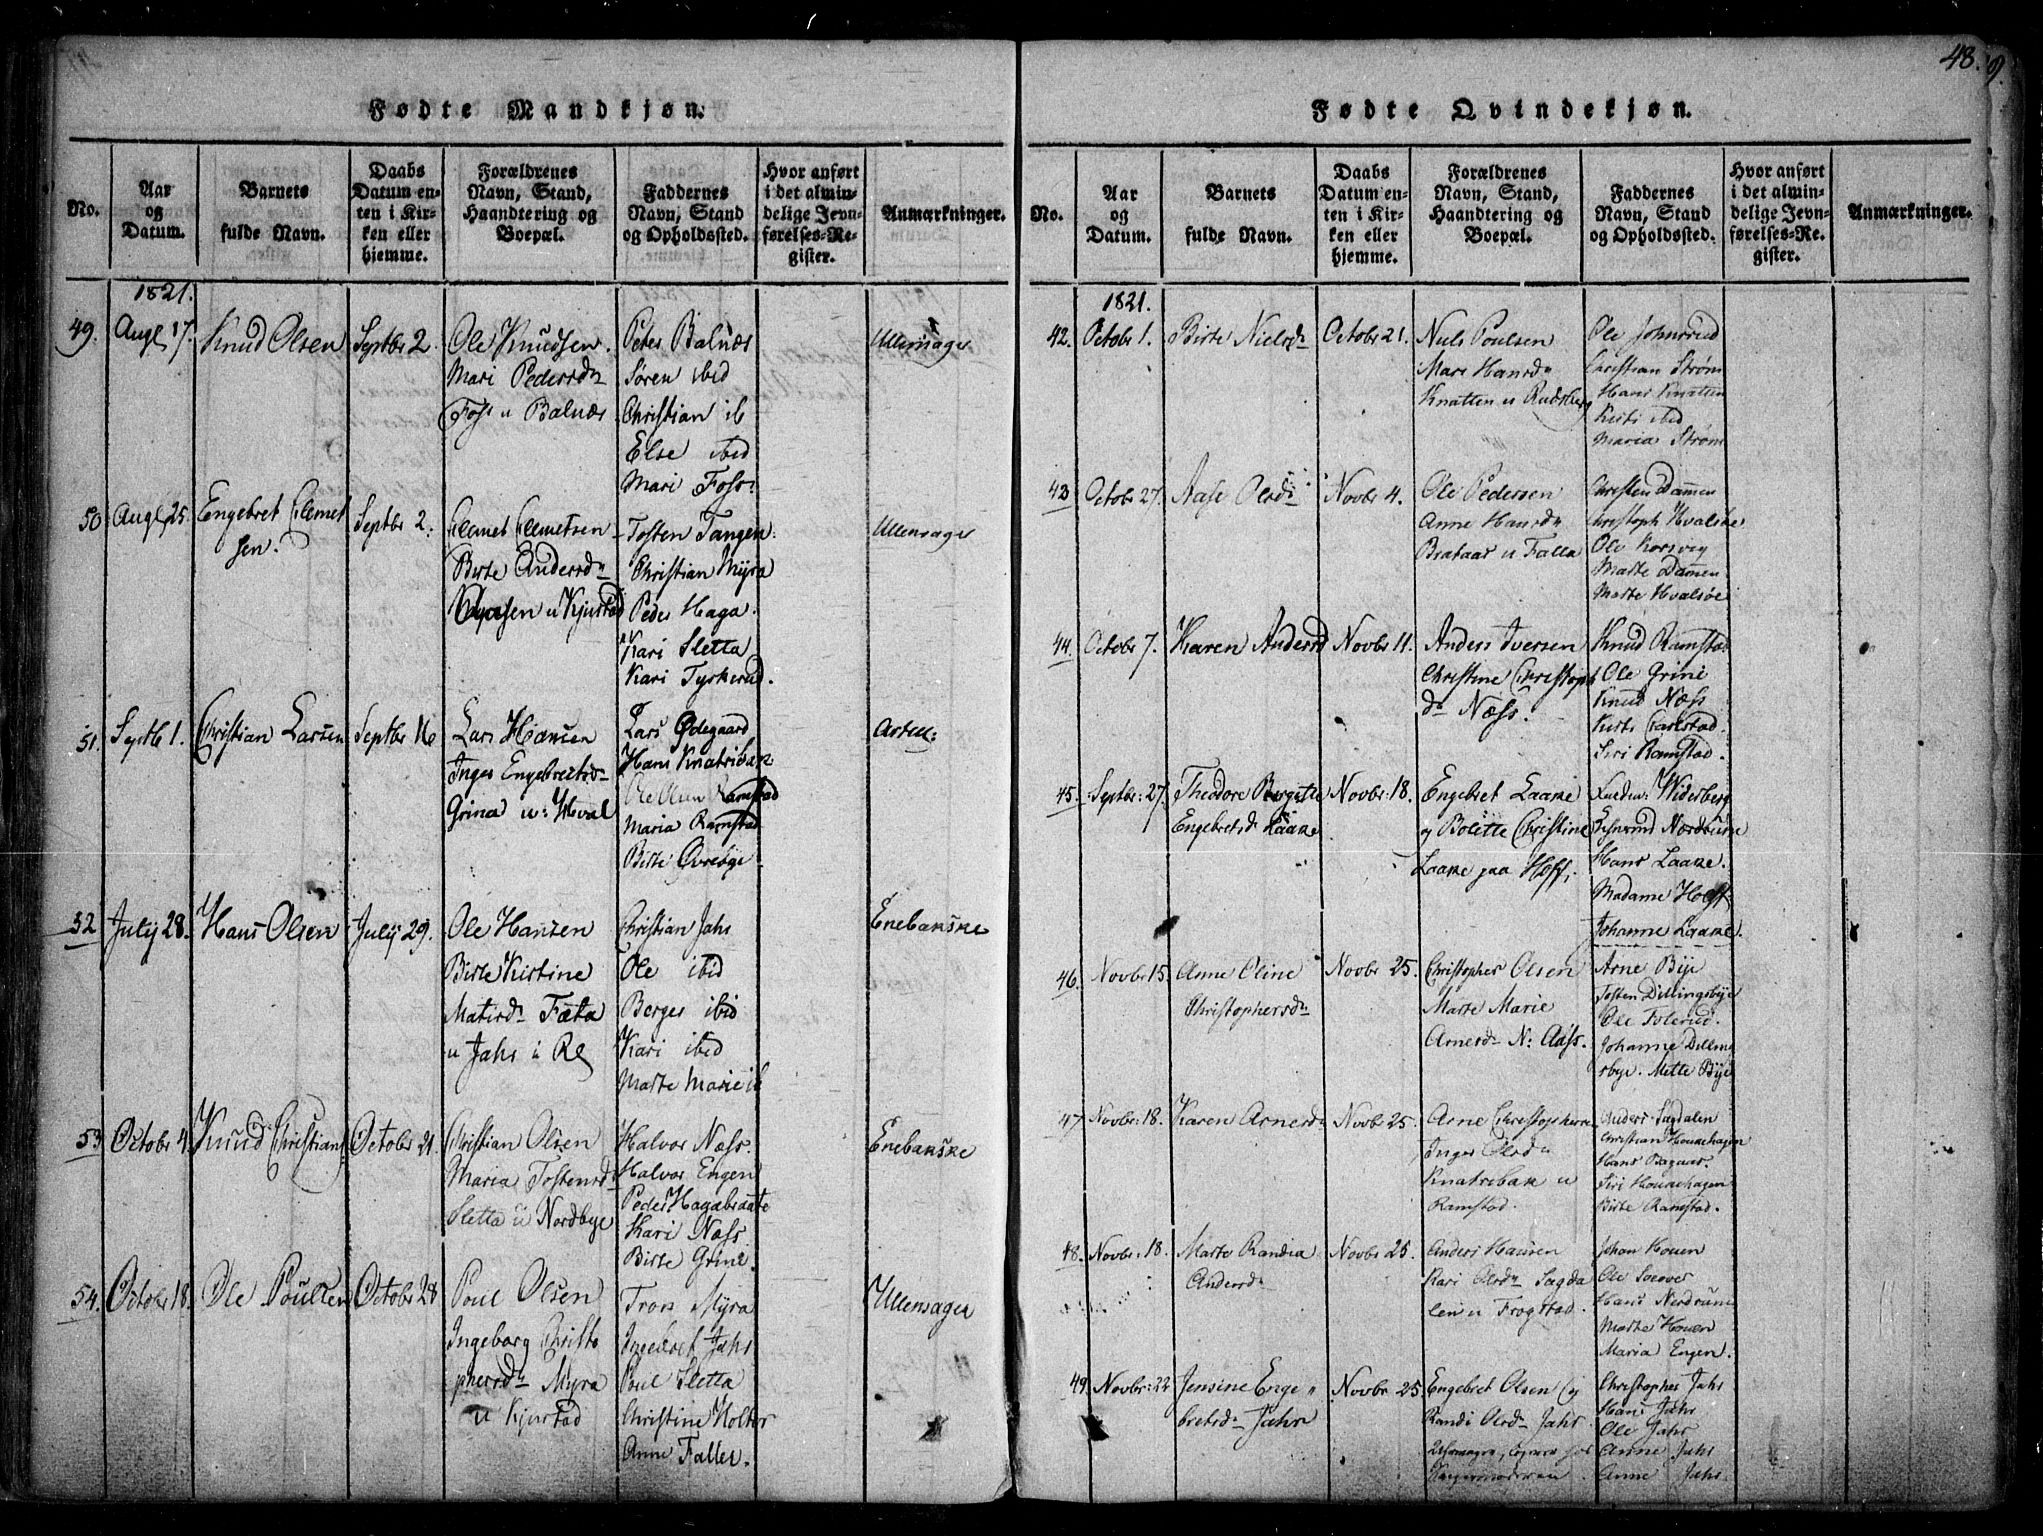 48.
9.
Fødte Mandkjøn.
No.
Aar
og
Datum.
Barnets
fulde Navn.
Daabs
Datum en-
ten i Kir-
ken eller
hjemme.
Forældrenes
Navn, Stand,
Haandtering og
Boepæl.
Faddernes
Navn, Stand
og Opholdssted.
Hvor anført
i det almin-
delige Jevn-
førelses-Re-
gister.
Anmærkninger.
1821.
49.
Augl. 17.
Knud Olsen
Septbr 2.
Ole Knudsen.
Mari Pedersdn
Foss u Balnæs
Peter Balnæs
Sören ibid
Christian ib
Else ibid
Mari Foss.
Ullensager
50
Augl. 25.
Engebret Clemet
sen.
Septbr 2.
Clemet Clemetsen
Birte Andersdn
u Kjustad
Tosten Tangen.
Christian Myra
Peder Haga.
Kari Sletta
Kari Tyskerud.
Ullensager
51.
Septb 1.
Christian Larsen
Septbr 16
Lars Hansen
Inger Engebretsd
Grina u: Hval
Lars Ødegaard
Hans Knatribak
Ole Olsen Ramstad
Maria Ramstad
Birte Øvrebye
52
July 28.
Hans Olsen
July 29.
Ole Hansen
Birte Kirstine
Matisdn Fæta
u Jahr i
Christian Jahr
Ole ibid
Berger ibid
Kari ibid
Marte Marie ib
Enebakske
53
Octobr 4.
Knud Christians
Octobr 21
Christian Olsen
Maria Tostensd
Sletta u Nordbye
Halvor Næss.
Halvor Engen
Peder Hagabraate
Kari Næss
Birte Grine.
Enebakske
54.
Octobr 18.
Ole Poulsen
Octobr 28
Poul Olsen
Ingeborg Christo
phersdn Myra
u Kjustad
Tron Myra
Ingebret Jahr
Poul Sletta
Christine Holter
Anne Faller.
Ullensager
Fødte Qvindekjøn.
No.
Aar
og
Datum.
Barnets
fulde Navn.
Daabs
Datum en-
ten i Kir-
ken eller
hjemme.
Forældrenes
Navn, Stand,
Haandtering og
Boepæl.
Faddernes
Navn, Stand
og Opholdssted.
Hvor anført
i det almin-
delige Jevn-
førelses-Re-
gister.
Anmærkninger.
1821.
42.
Octobr 1.
Birte Nielsdn
Octobr 21.
Niels Poulsen
Mari Hansdn
Knatten u Rudsberg
Ole Johnsrud
Christian Strøm
Hans Knatten
Kirsti ibid
Maria Strøm
43
Octobr 27.
Aase Olsd
Novbr 4.
Ole Pedersen
Anne Hansdn
Brataas u Falla
Christen Damen
Christoph Hvalsøe
Ole Korsveg
Marte Damen
Marte Hvalsøe
44.
Octobr 7.
Karen Andersd
Novbr 11.
Anders Iversen
Christine Christoph
dn Næss.
Knud Ramstad
Ole Grine
Knud Næss
Kirsti Carlstad.
Siri Ramstad.
45.
Septbr: 27.
Theodore Bergitte
Engebretsd. Laake
Novbr: 18.
Engebret Laake
og Bolette Christine
Laake paa Hoff.
Widerberg
Nordbume
Hans Laake.
Madame Hoff,
Johanne Laake.
46.
Novbr 15.
Anne Oline
Christophersdn
Novbr 25.
Christopher Olsen
Marte Marie
Arnesdn N: Aass.
Arne Bye
Tosten Dillingsbye
Ole Tolerud.
Johanne Dilling
sbye. Mette Bye
47
Novbr: 18.
Karen Arnesdn
Novbr 25.
Arne Christophers
Inger Olsdn
Knatribak u
Ramstad.
Anders Sagdalen
Christian Houkehagen
Hans
Siri Houkehagen
Birte Ramstad.
48.
Novbr: 18.
Marte Randia
Andersdn
Novbr 25.
Anders Hansen
Kari Olsdn Sagda
len u Frogstad.
Johan Houen
Ole
Hans Nordrum
Marte Houen
Maria Engen.
49
Novbr: 22
Jensine Enge"
bretsdn Jahr
Novbr 25.
Engebret Olsen og
Randi Olsdn Jahr
Christopher Jahr
Hans Jahr
Ole Jahr
Anne Jahr
Anne Jahr